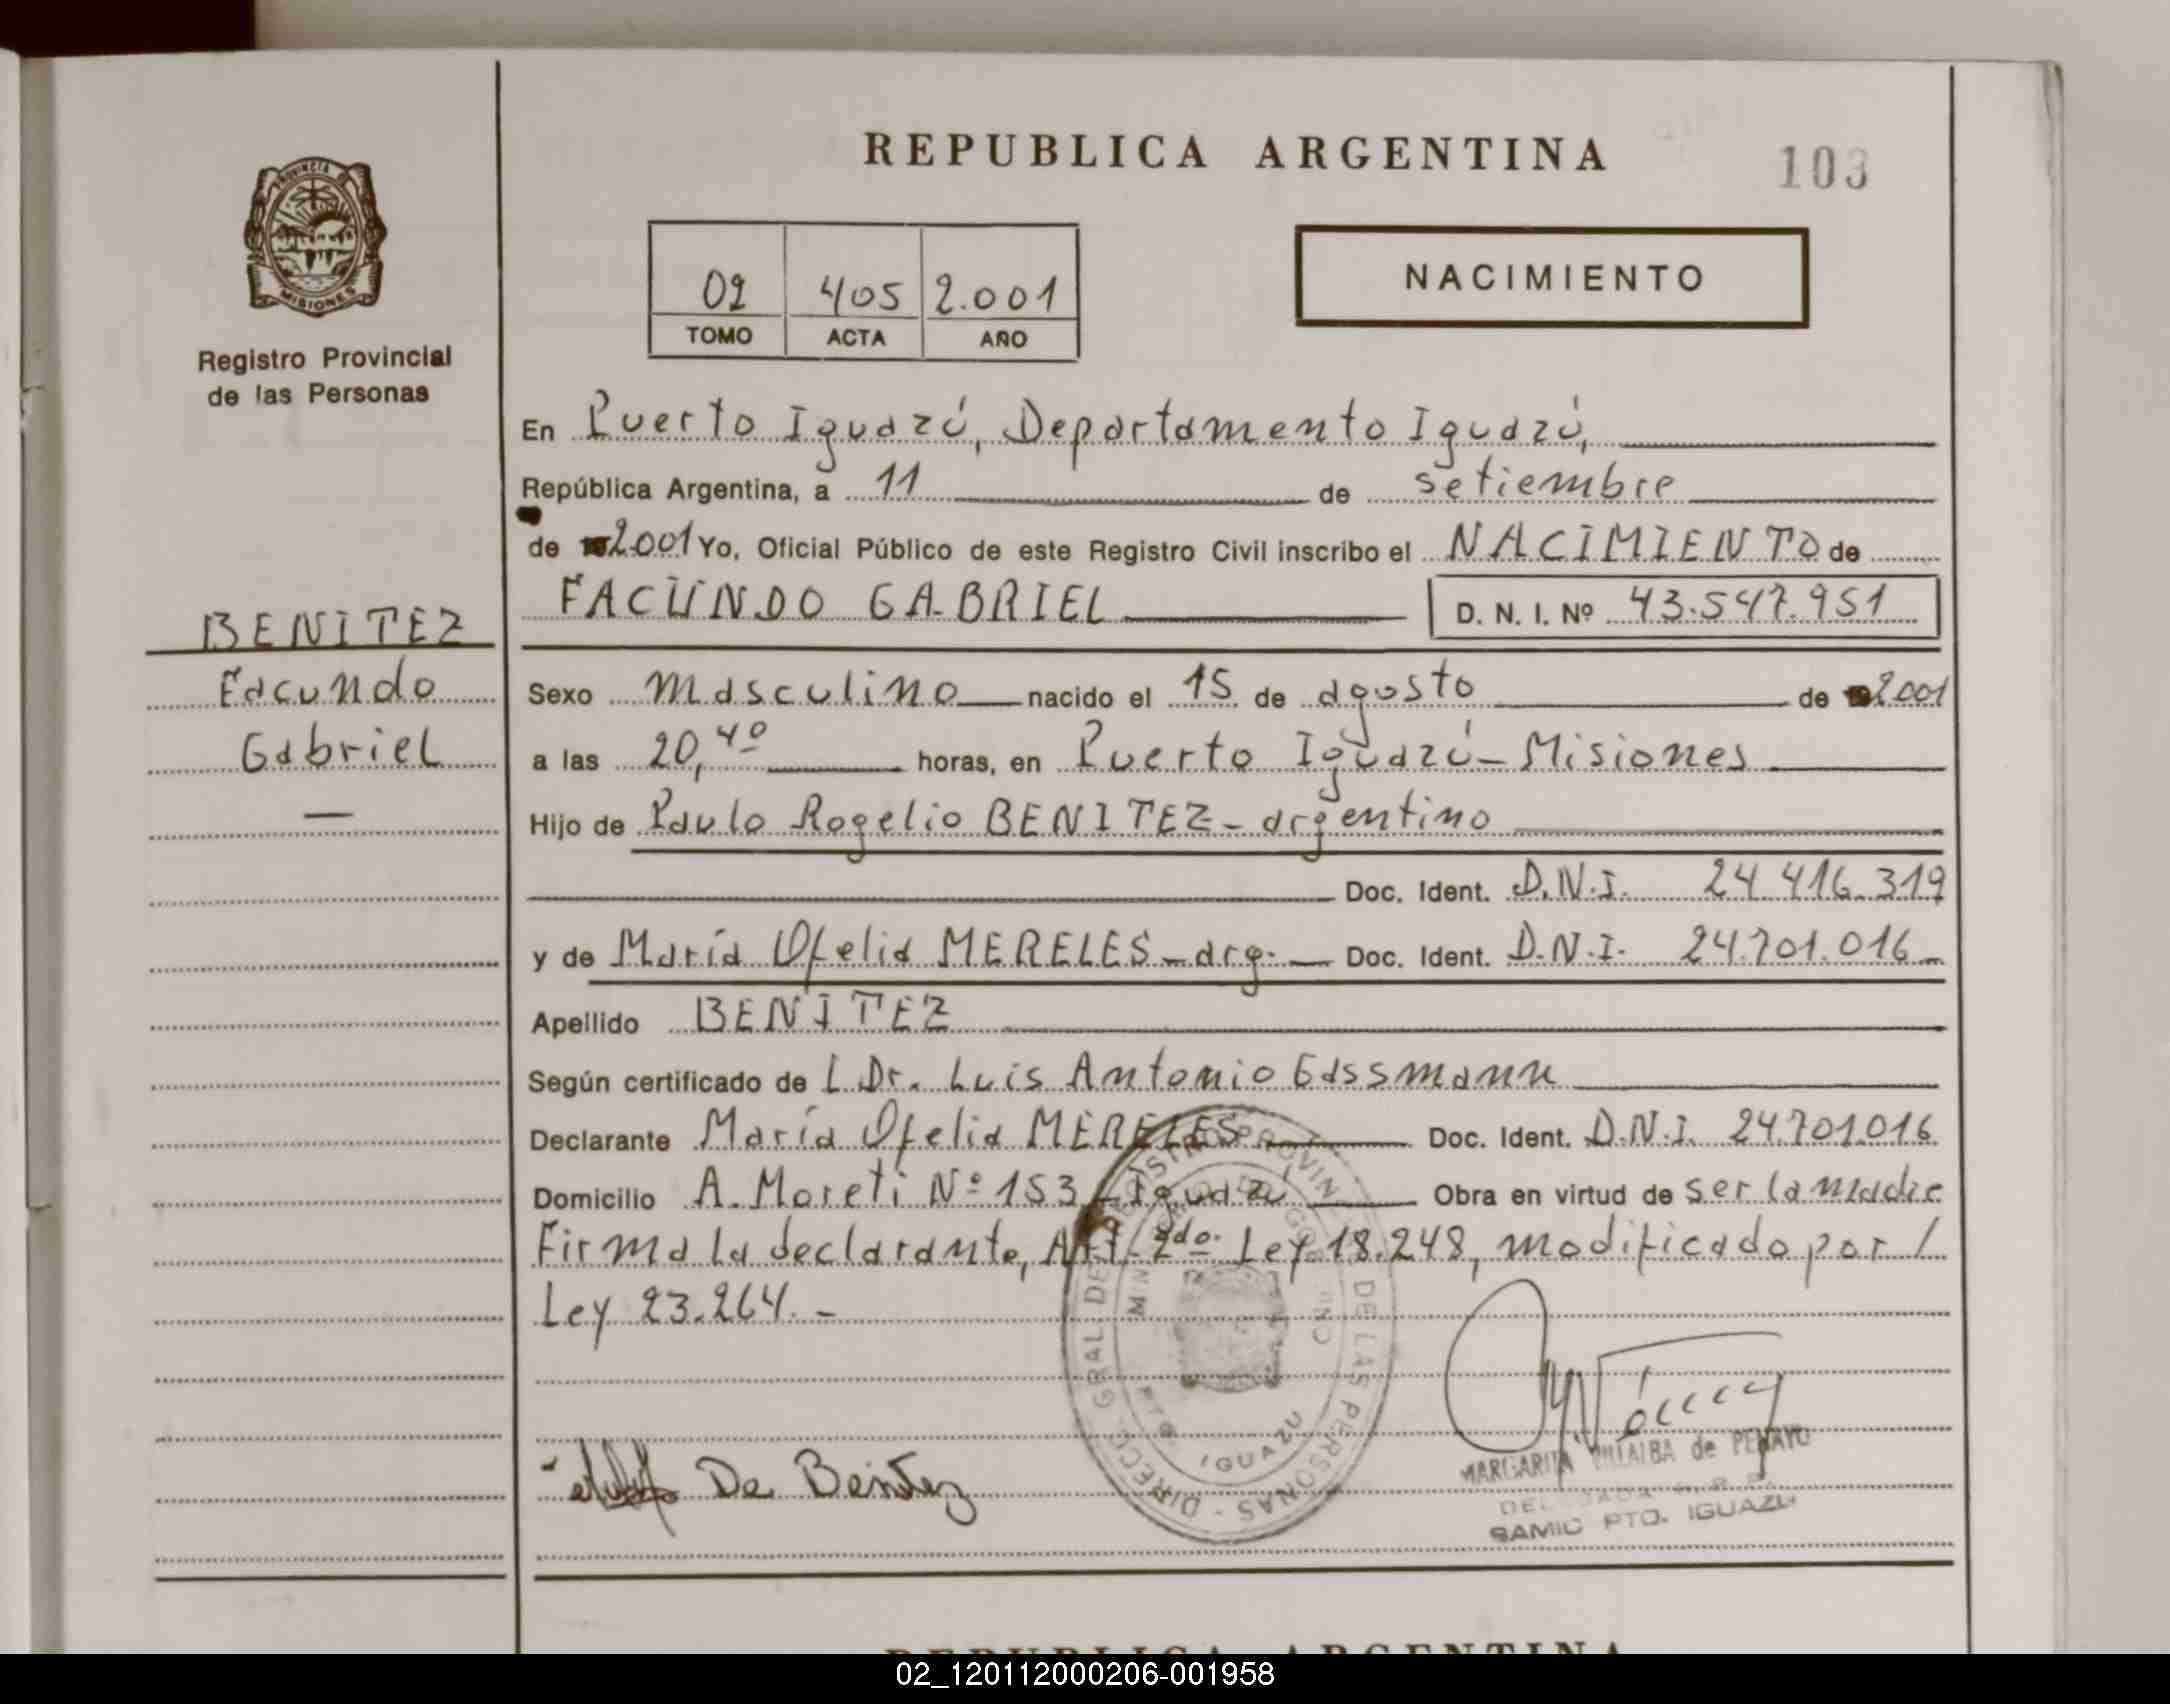 REPUBLICA ARGENTINA
103
PROVINCIA DE
MISIONES
Registro Provincial
de las Personas
02 405 2.001
TOMO ACTA AÑO
NACIMIENTO
En Puerto Iguazú, Departamento Iguazú,
República Argentina, a 11 de setiembre
de 2.001 Yo, Oficial Público de este Registro Civil inscribo el NACIMIENTO de
FACUNDO GABRIEL D. N. I. Nº 43.547.951
BENITEZ
Facundo
Gabriel
—
Sexo masculino nacido el 15 de agosto de 2.001
a las 20,40 horas, en Puerto Iguazú-Misiones
Hijo de Paulo Rogelio BENITEZ - argentino
Doc. Ident. D.N.I. 24.416.319
y de María Ofelia MERELES - arg. Doc. Ident. D.N.I. 24.701.016
Apellido BENITEZ
Según certificado de L Dr. Luis Antonio Gassmann
Declarante María Ofelia MERELES Doc. Ident. D.N.I. 24.701.016
Domicilio A. Moreti Nº 153 - Iguazú Obra en virtud de ser la madre
Firma la declarante, Art. 2do. Ley 18.248, modificado por /
Ley 23.264. -
DIRECC. GRAL. DEL REGISTRO PROVINCIAL DE LAS PERSONAS
GOBIERNO
IGUAZU
De Benitez
MARGARITA VILLALBA de PENAYO
DELEGADA
SAMIC PTO. IGUAZU
REPUBLICA ARGENTINA
02_120112000206-001958